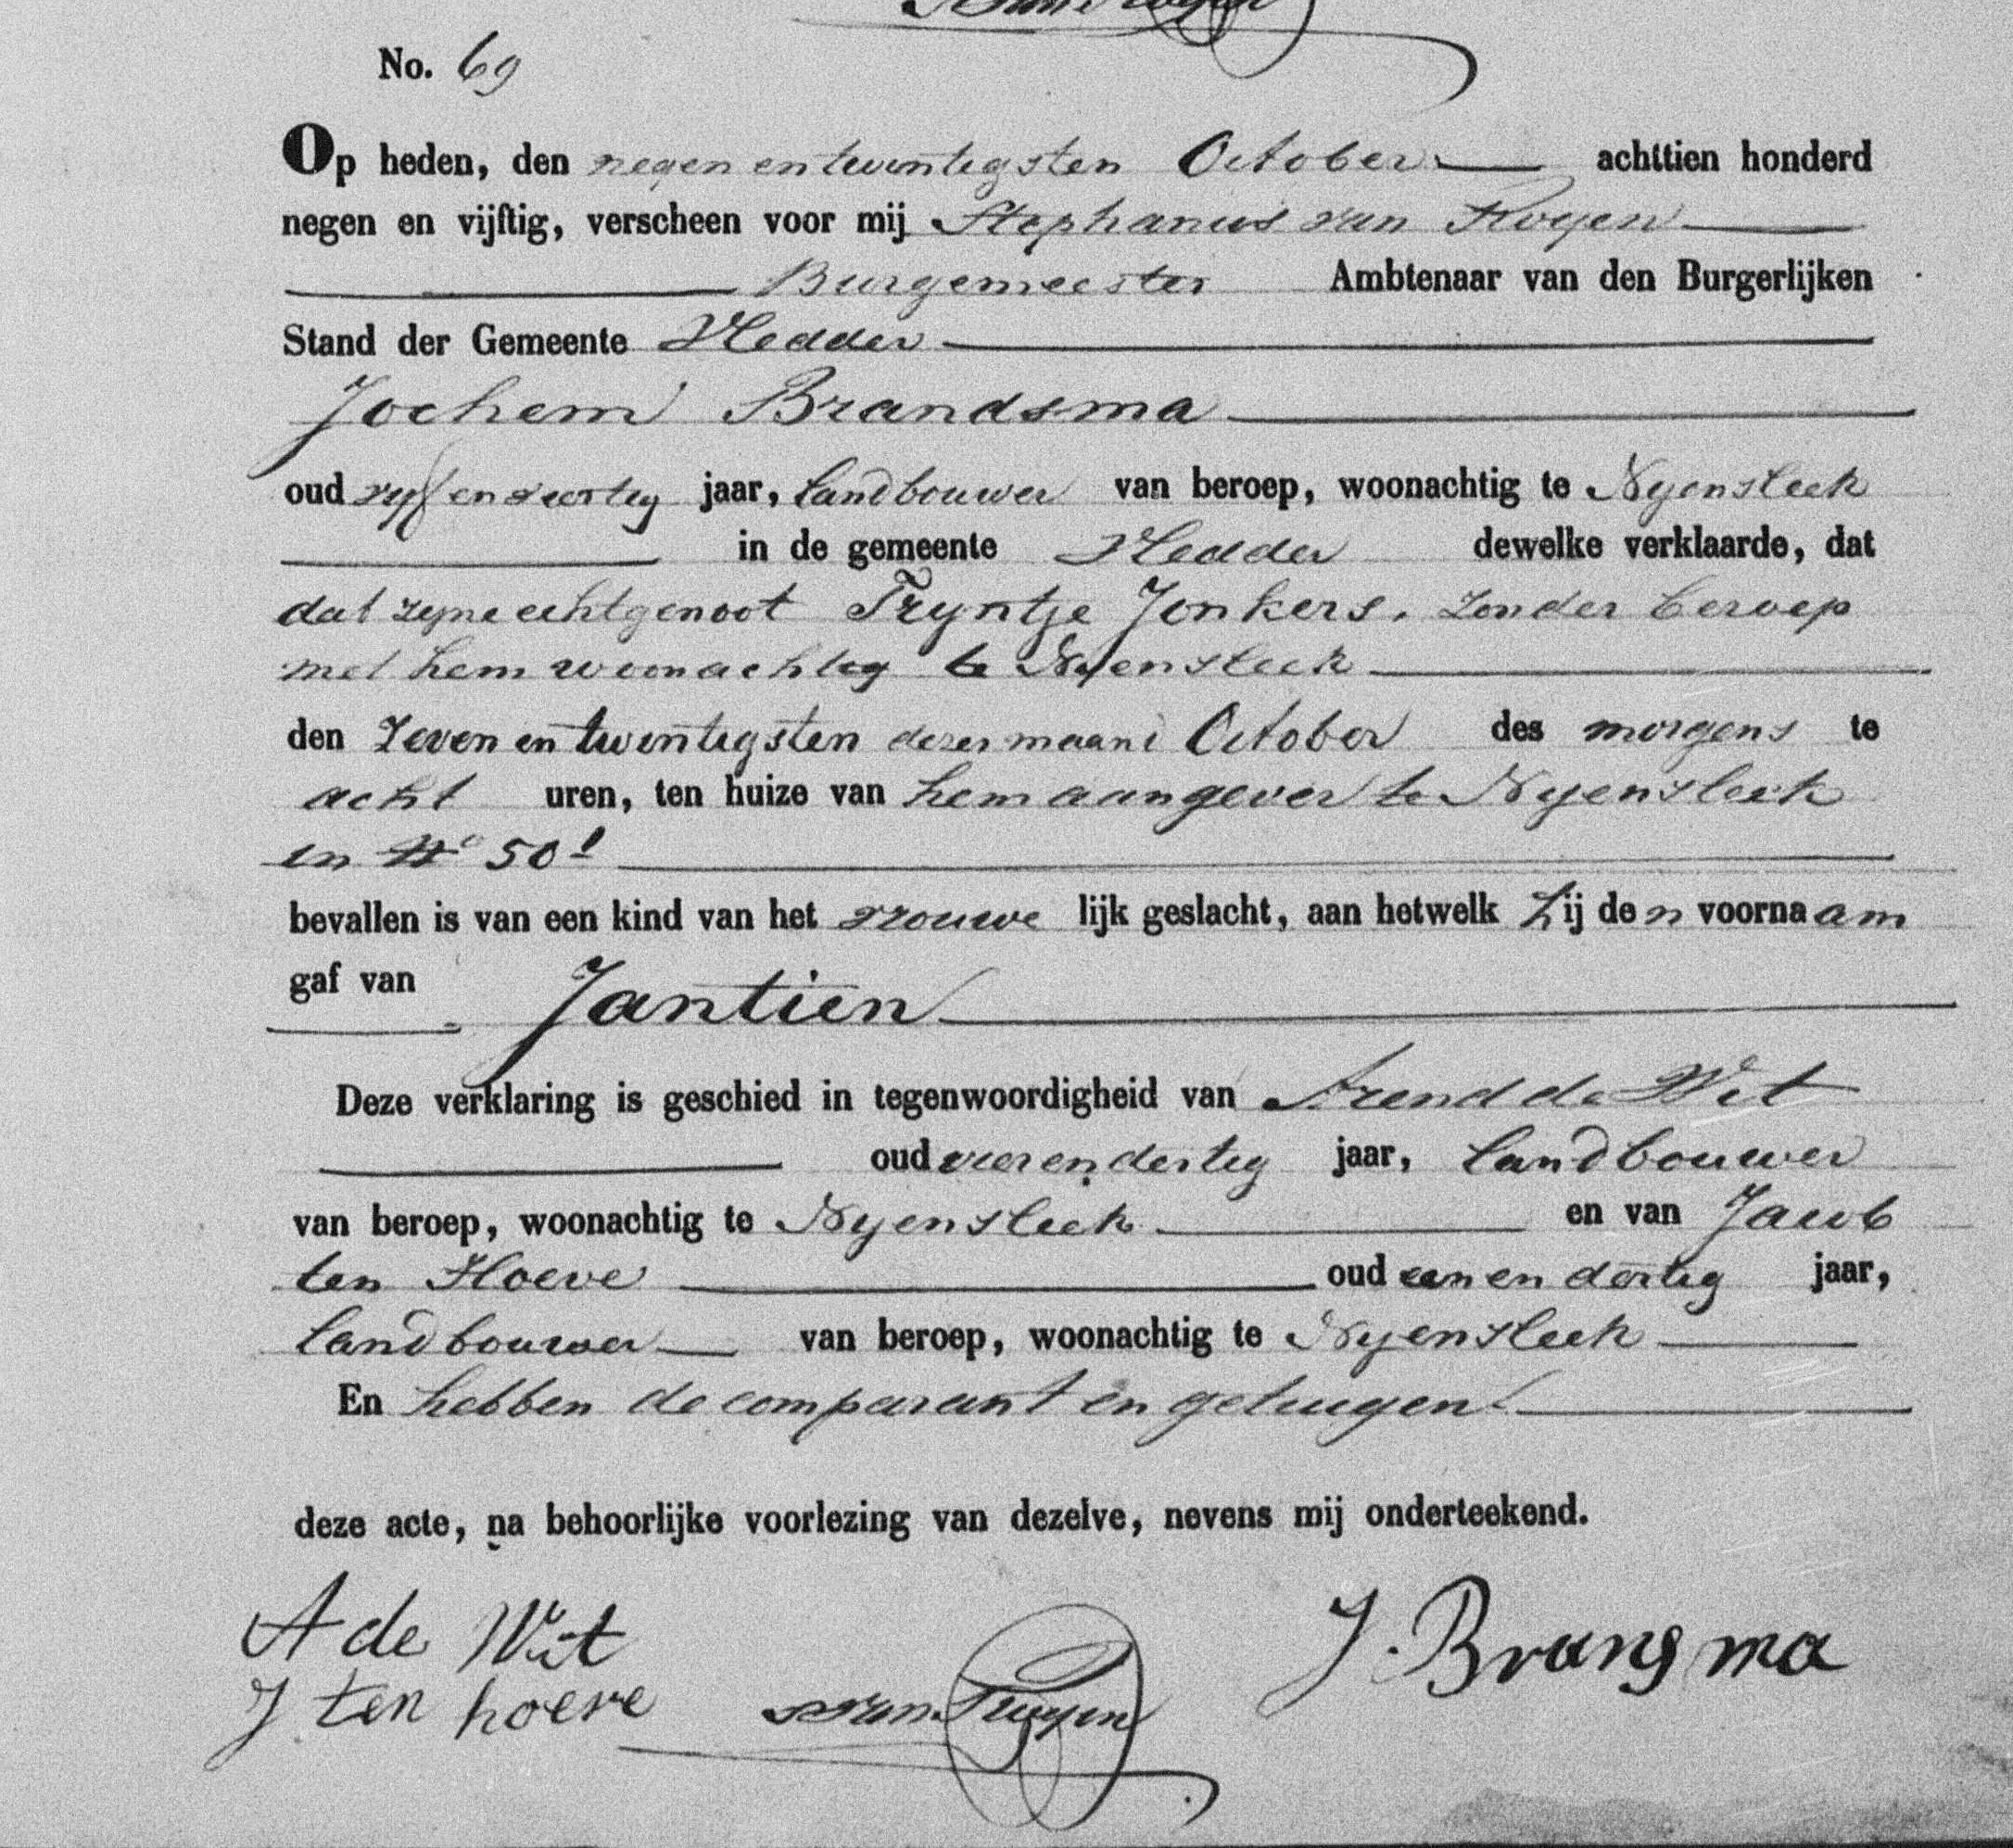 No. 69
Op heden, den negen en twintigsten October achttien honderd
negen en vijftig, verscheen voor mij Stephanus van Royen
Burgemeester Ambtenaar van den Burgerlijken
Stand der Gemeente Vledder
Jochem Brandsma
oud vyf en veertig jaar, landbouwer van beroep, woonachtig te Nyensleek
in de gemeente Vledder dewelke verklaarde, dat
dat zyne echtgenoot Tryntje Jonkers, zonder beroep
met hem woonachtig te Nyensleek
den Zeven en twintigsten dezer maand October des morgens te
acht uren, ten huize van hem aangever te Nyensleek
in No 50
bevallen is van een kind van het vrouwe lijk geslacht, aan hetwelk Zij den voornaam
gaf van Jantien
Deze verklaring is geschied in tegenwoordigheid van Arend de Wit
oud vier en dertig jaar, landbouwer
van beroep, woonachtig te Nyensleek en van Jacob
ten Hoeve oud een en dertig jaar,
landbouwer van beroep, woonachtig te Nyensleek
En hebben de comparant en getuigen
deze acte, na behoorlijke voorlezing van dezelve, nevens mij onderteekend.
A de Wit
J. Brangma
J ten hoeve
SvanRoyen